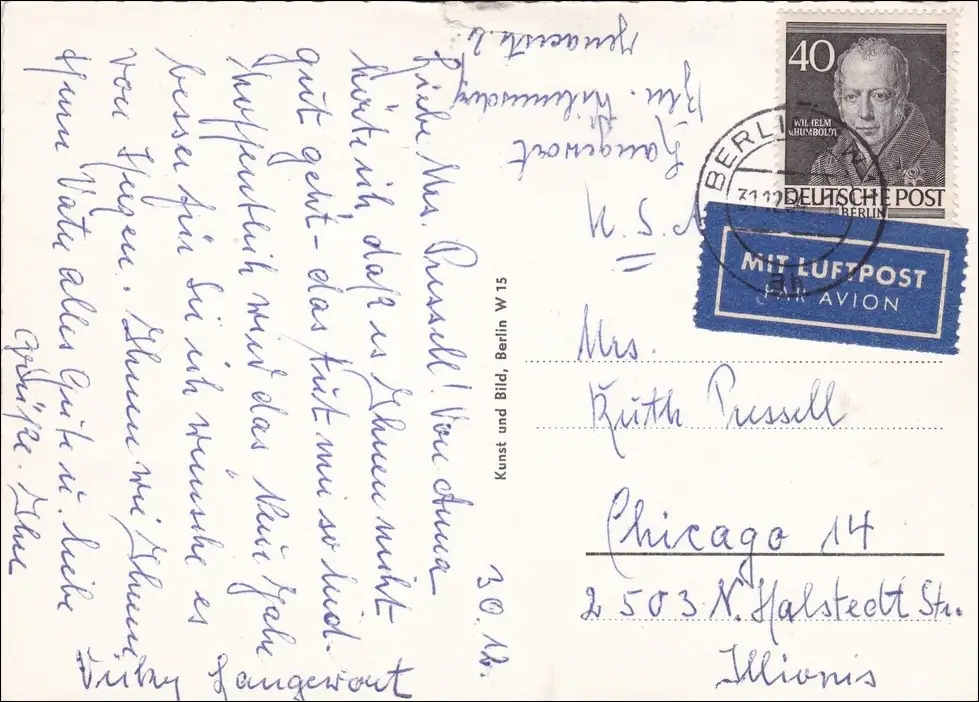 30. 12.
Liebe Mrs. Pressell! Von Anna
hörte ich, daß es Ihnen nicht
gut geht - das tut mir so leid.
Hoffentlich wird das neue Jahr
besser für Sie ich wünsche es
von Herzen. Ihnen wie Ihrem
Herrn Vater alles Gute u. liebe
Grüße. Ihre
Langewort
Langewort
Bln. Wilmersdorf
Jenaerstr.
U. S. A
Mrs.
Ruth Pressell
Chicago 14
2503 N. Halstedt Str.
Illionis
Kunst und Bild, Berlin W 15
40
WILHELM
v. HUMBOLDT
DEUTSCHE POST
BERLIN
BERLIN
31.12.
MIT LUFTPOST
PAR AVION